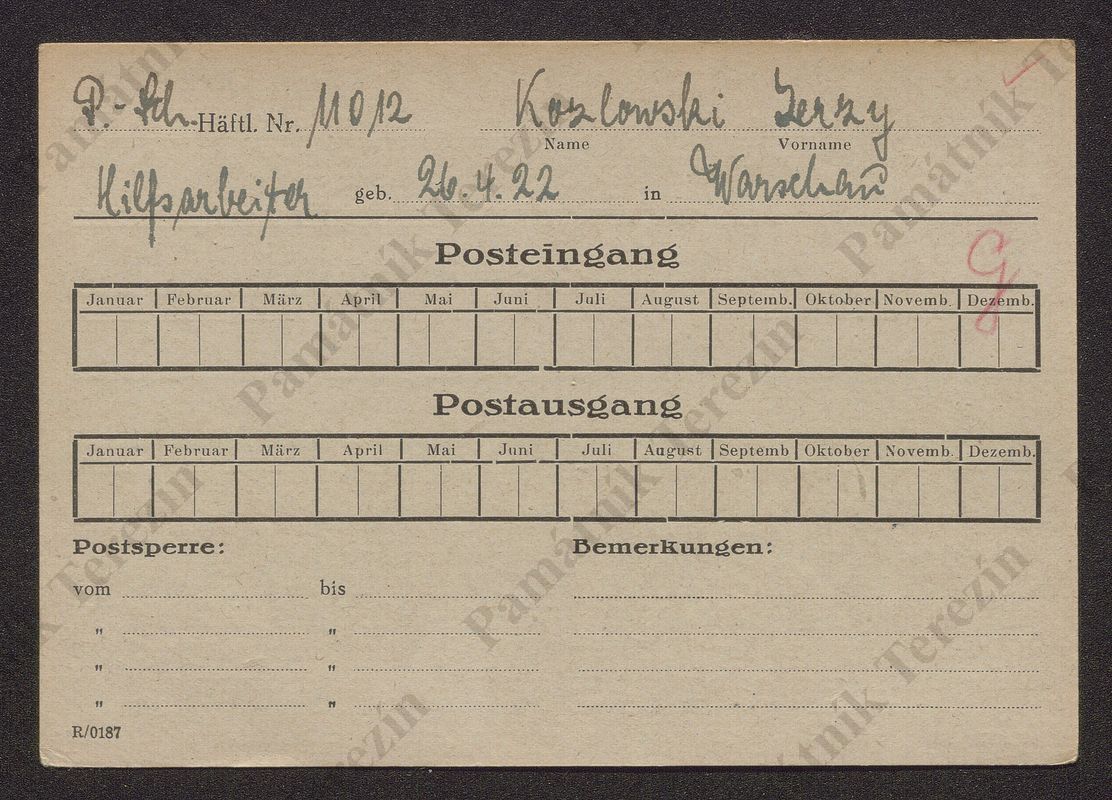 P.-Sch. Häftl. Nr. 11012 Kozlowski Jerzy
Name Vorname
Hilfsarbeiter geb. 26.4.22 in Warschau
G
Posteingang
Januar Februar März April Mai Juni Juli August Septemb. Oktober Novemb. Dezemb.
Postausgang
Januar Februar März April Mai Juni Juli August Septemb Oktober Novemb. Dezemb.
Postsperre: Bemerkungen:
vom bis
" "
" "
" "
R/0187
Památník Terezín